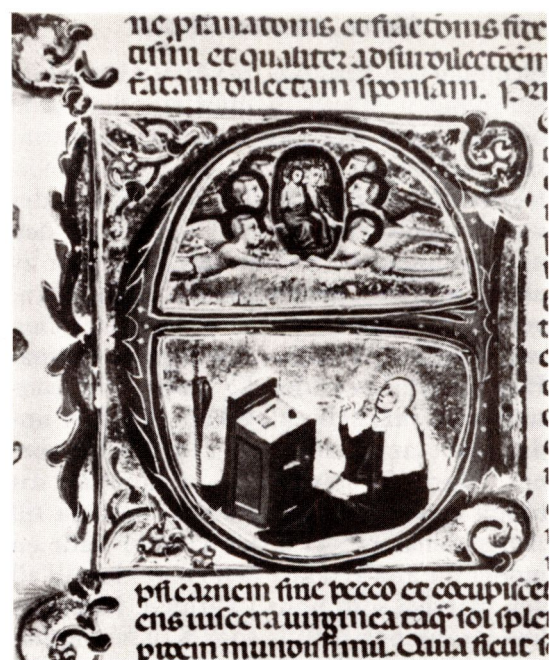 ne pfanatonis et fractonis fide
tismi et qualiter ad sui dilectoem
fatam dilectam sponsam. Pri
E
psi carnem sine pecco et cocupiscen
ens uiscera uirginea taq sol splen
mundissimu. Quia sicut s